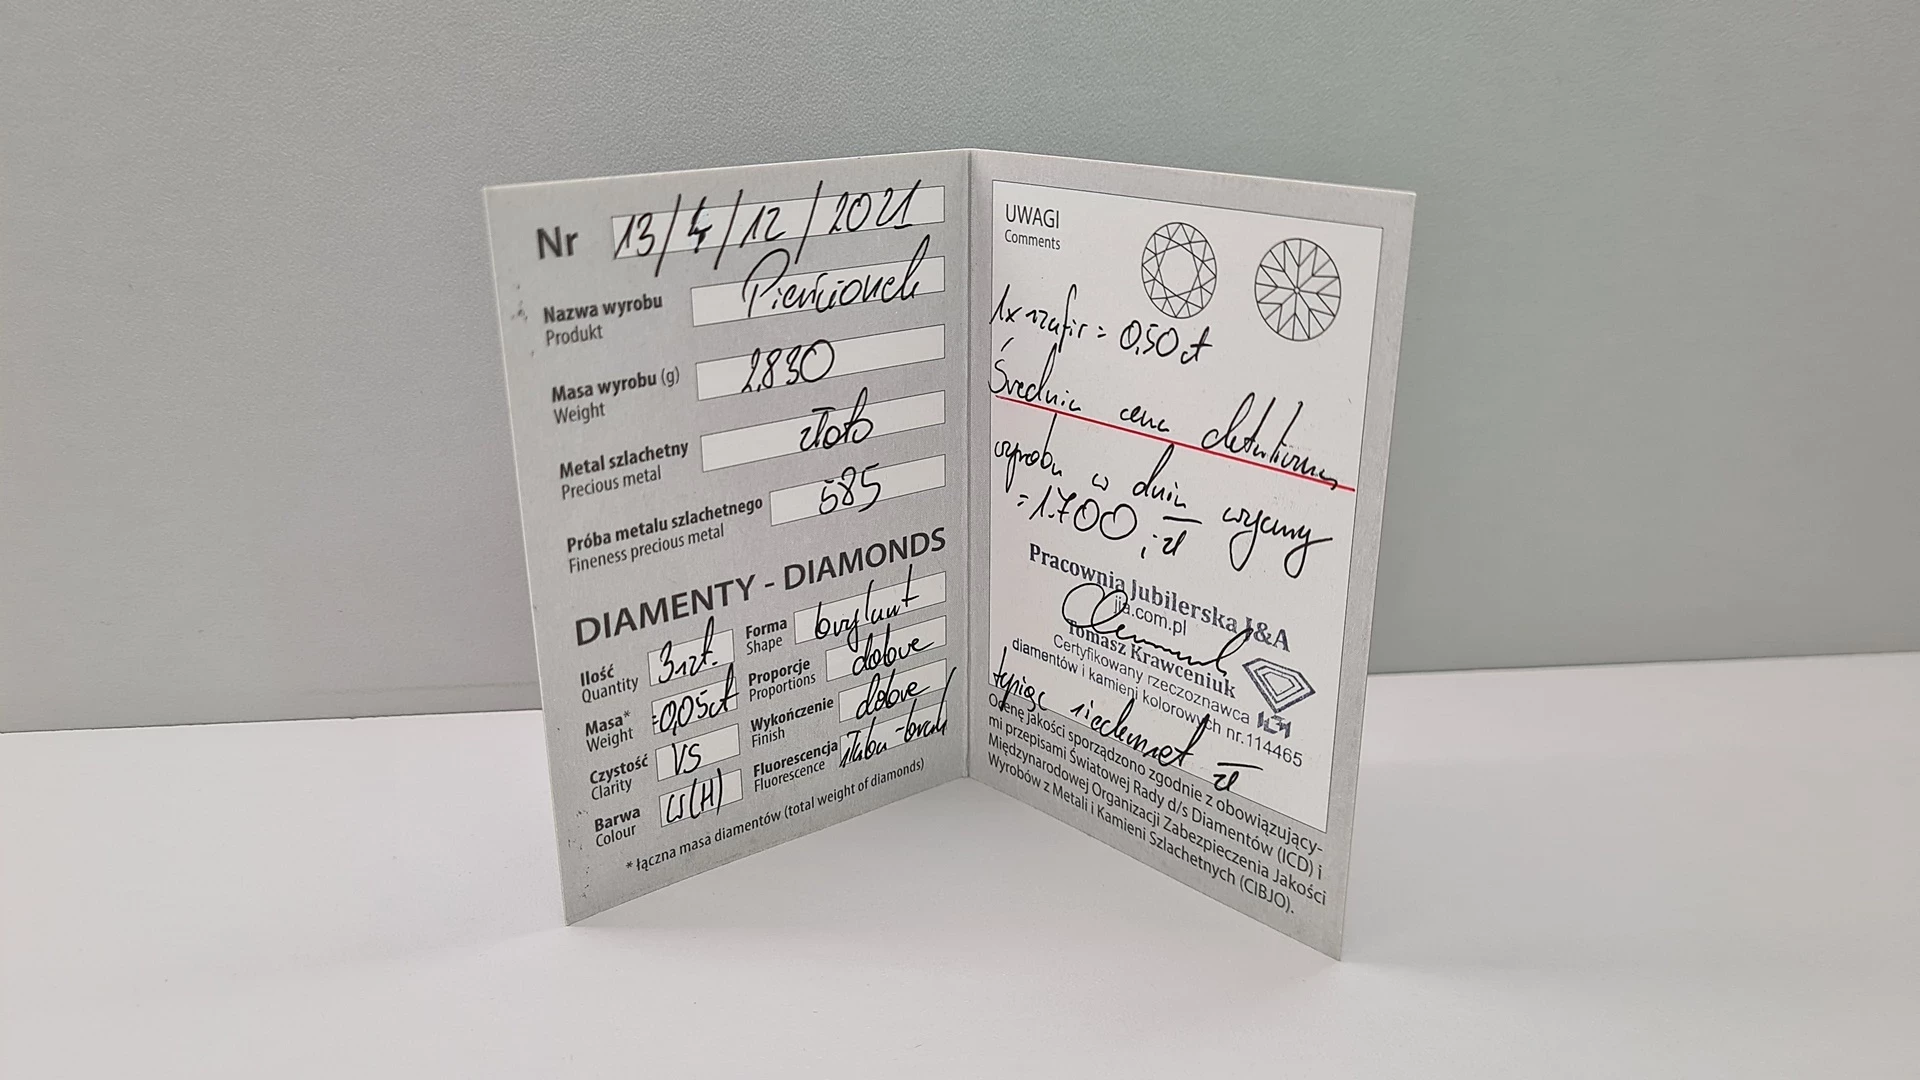 Nr 13/4/12/2021
Nazwa wyrobu Pierścionek
Produkt
Masa wyrobu (g) 2,830
Weight
Metal szlachetny złoto
Precious metal
Próba metalu szlachetnego 585
Fineness precious metal
DIAMENTY - DIAMONDS
Ilość 3szt.
Quantity
Forma brylant
Shape
Masa* =0,05ct
Weight
Proporcje dobre
Proportions
Czystość VS
Clarity
Wykończenie dobre
Finish
Barwa (H)
Colour
Fluorescencja słaba-brak
Fluorescence
* łączna masa diamentów (total weight of diamonds)
UWAGI
Comments
1x szafir = 0,50ct
Średnia cena detaliczna
wyrobu w dniu wyceny
=1.700,- zł
Pracownia Jubilerska J&A
jia.com.pl
Tomasz Krawceniuk
Certyfikowany rzeczoznawca
diamentów i kamieni kolorowych nr.114465
tysiąc siedemset zł
Ocenę jakości sporządzono zgodnie z obowiązujący-
mi przepisami Światowej Rady d/s Diamentów (ICD) i
Międzynarodowej Organizacji Zabezpieczenia Jakości
Wyrobów z Metali i Kamieni Szlachetnych (CIBJO).